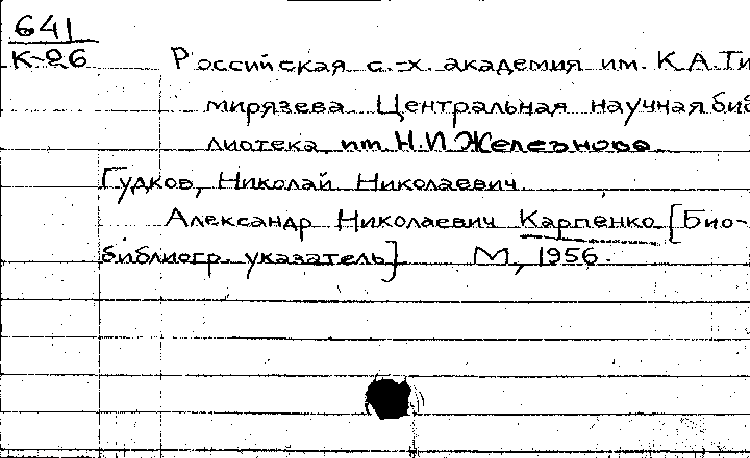 641
К-26
Российская с.-х. академия им. К.А.Ти
мирязева. Центральная научная биб
лиотека им. Н.И.Железнова.
Гудков, Николай Николаевич.
Александр Николаевич Карпенко [Био-
библиогр. указатель]. М., 1956.